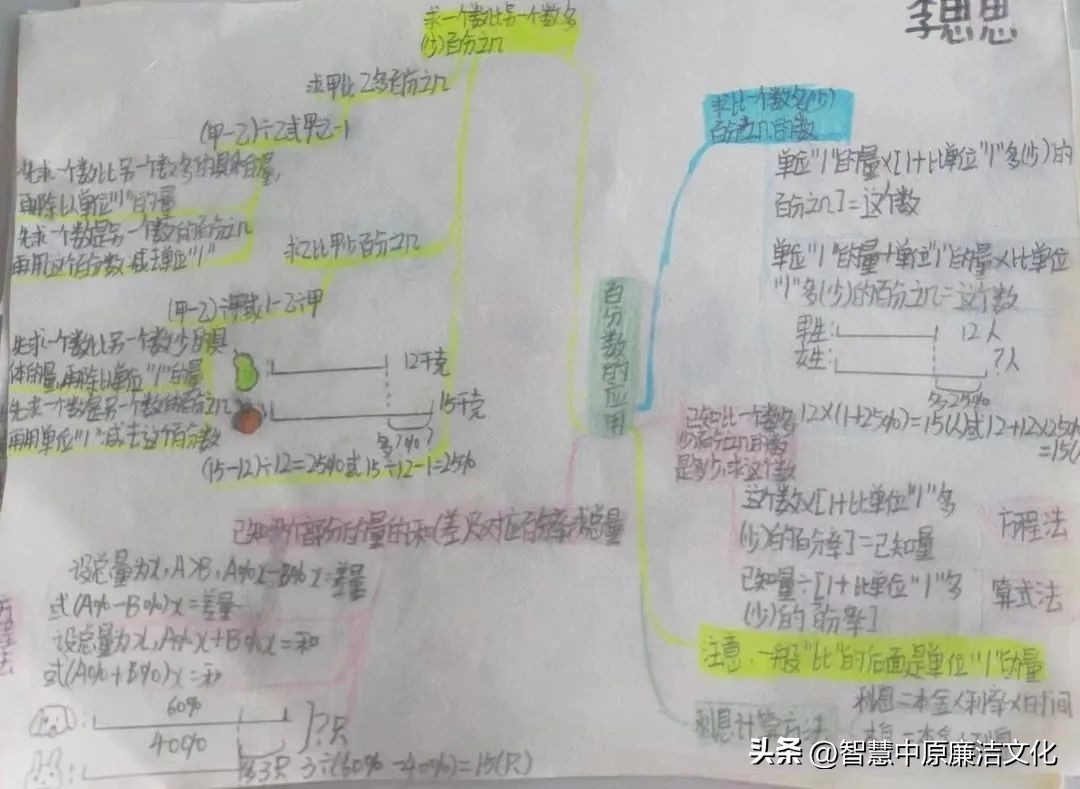 李思思
求一个数比另一个数多
(少)百分之几
求甲比乙多百分之几
(甲-乙)÷乙或甲÷乙-1
先求一个数比另一个数多的具体的量,
再除以单位"1"的量
先求一个数是另一个数的百分之几
再用这个百分数减去单位"1"
求乙比甲少百分之几
(甲-乙)÷甲或1-乙÷甲
先求一个数比另一个数少的具
体的量,再除以单位"1"的量
先求一个数是另一个数的百分之几
再用单位"1"减去这个百分数
12千克
15千克
多?%?
(15-12)÷12=25%或15÷12-1=25%
百分数的应用
求比一个数多(少)
百分之几的数
单位"1"的量×[1+比单位"1"多(少)的
百分之几]=这个数
单位"1"的量+单位"1"的量×比单位
"1"多(少)的百分之几=这个数
男生:
12人
女生:
?人
多25%
12×(1+25%)=15(人)或12+12×25%
=15(
已知比一个数多
少百分之几的数
是多少,求这个数
这个数×[1+比单位"1"多
(少)的百分率]=已知量
方程法
已知量÷[1+比单位"1"多
(少)的百分率]
算式法
注意,一般"比"的后面是单位"1"的量
利息计算方法
利息=本金×利率×时间
已知两个部分的量的和(差)及对应百分率,求总量
设总量为x,A>B,A%x-B%x=差量
或(A%-B%)x=差量
设总量为x,A%x+B%x=和
或(A%+B%)x=和
60%
40%
?只
多3只
3÷(60%-40%)=15(只)
头条 @智慧中原廉洁文化